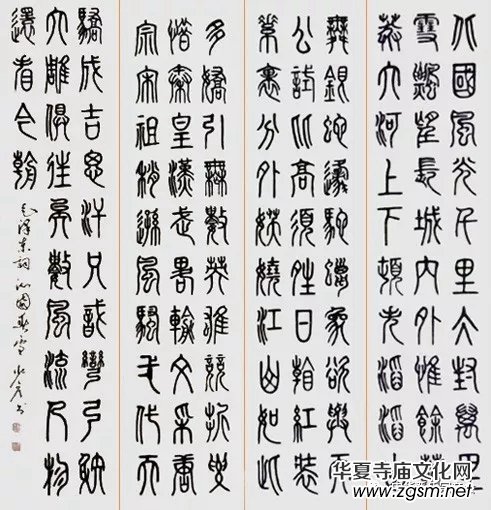 北國風光千里冰封萬里
雪飄望長城內外惟餘莽
莽大河上下頓失滔滔山
舞銀蛇原馳蠟象欲與天
公試比高須晴日看紅裝
素裹分外妖嬈江山如此
多嬌引無數英雄競折腰
惜秦皇漢武略輸文采唐
宗宋祖稍遜風騷一代天
驕成吉思汗只識彎弓射
大雕俱往矣數風流人物
還看今朝
毛澤東詞沁園春雪
华夏寺庙文化网
www.zgsm.net